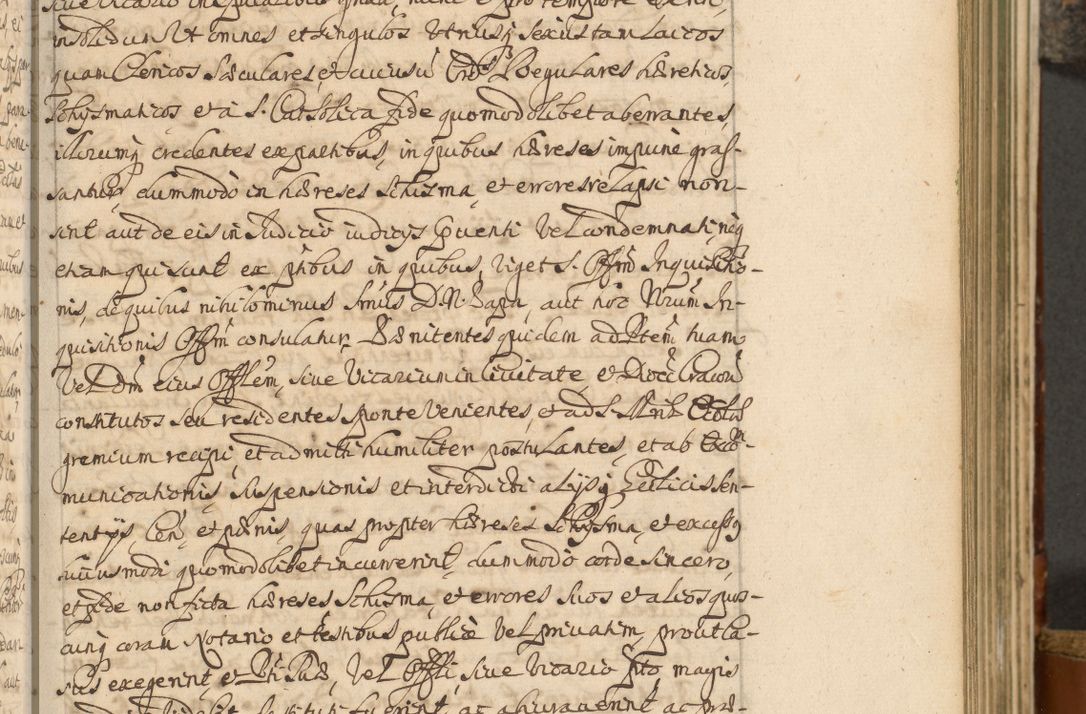 insolidum Ut omnes et singulos utriusq sexus tam Laicos
quam Clericos Sæculares, et cuiusvis Ordis Regulares hæreticos,
Schysmaticos et a S. Catholica fide quomodolibet aberrantes,
illorumq credentes ex partibus, in quibus hæreses impune gras-
santur, dummodo in hæreses Schisma, et errores relapsi non
sint aut de eis in Judicio iudicijs convicti vel condemnati, neq
etiam qui sunt ex ptibus in quibus, viget S. Offm Inquisitio-
nis, de quibus nihilominus Smus D. N. Papa, aut hoc Nrum In-
quisitionis Offm consulatur, Pænitentes quidem ad Ptem tuam
Vel Dm eius Offlem, siue Vicarium in Ciuitate et Diœc Cracoui
constitutos seu residentes sponte Venientes, et ad S. Mris Ecclæ
gremium recipi, et admitti humiliter postulantes, et ab Exco-
municationis, suspensionis et interdicti alijsq Eccliciis sen-
tentijs Cen, et pænis, quas propter hæreses Schisma, et excessq
huiusmodi quomodolibet incurrerint, dummodo corde sincero,
et fide non ficta hæreses Schisma, et errores suos et alios quos-
cunq coram Notario et testibus publice vel priuatim, prout ca-
sus exegerint, et Pti Tuæ, vel Offli, siue Vicario pto, magis